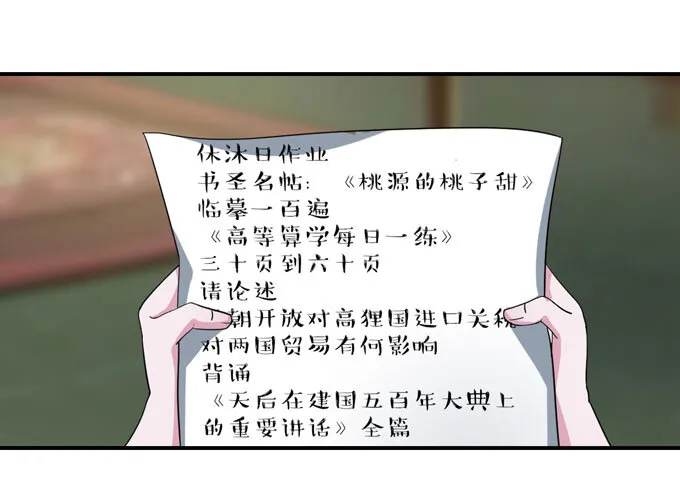 休沐日作业
书圣名帖：《桃源的桃子甜》
临摹一百遍
《高等算学每日一练》
三十页到六十页
请论述
朝开放对高狸国进口关税
对两国贸易有何影响
背诵
《天后在建国五百年大典上
的重要讲话》全篇